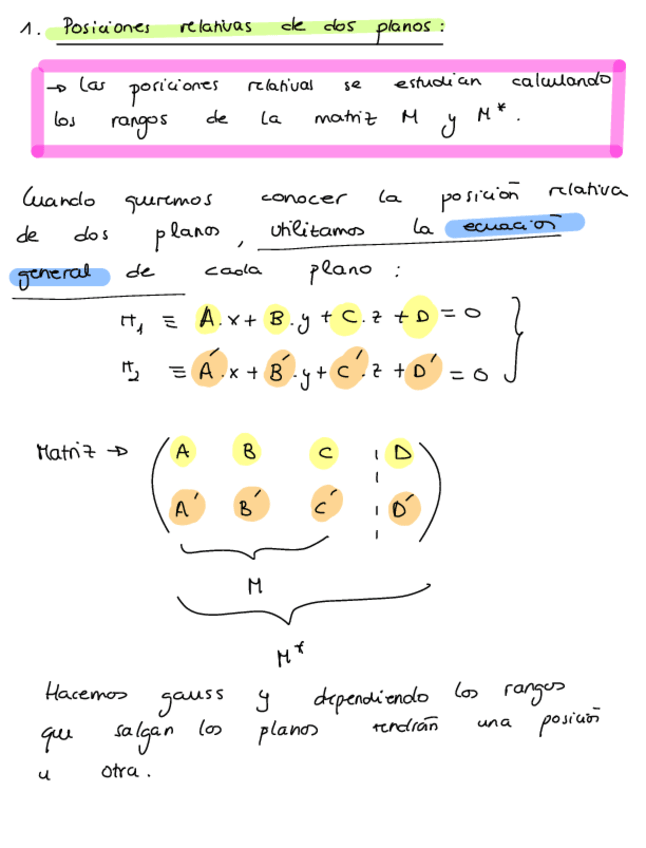 1. Posiciones relativas de dos planos:
→ Las posiciones relativas se estudian calculando
los rangos de la matriz M y M*.
Cuando queremos conocer la posición relativa
de dos planos, utilizamos la ecuación
general de cada plano:
π₁ ≡ A.x + B.y + C.z + D = 0
π₂ ≡ A´.x + B´.y + C´.z + D´ = 0
Matriz → ( A B C | D
A´ B´ C´ | D´ )
M
M*
Hacemos gauss y dependiendo los rangos
que salgan los planos tendrán una posición
u otra.